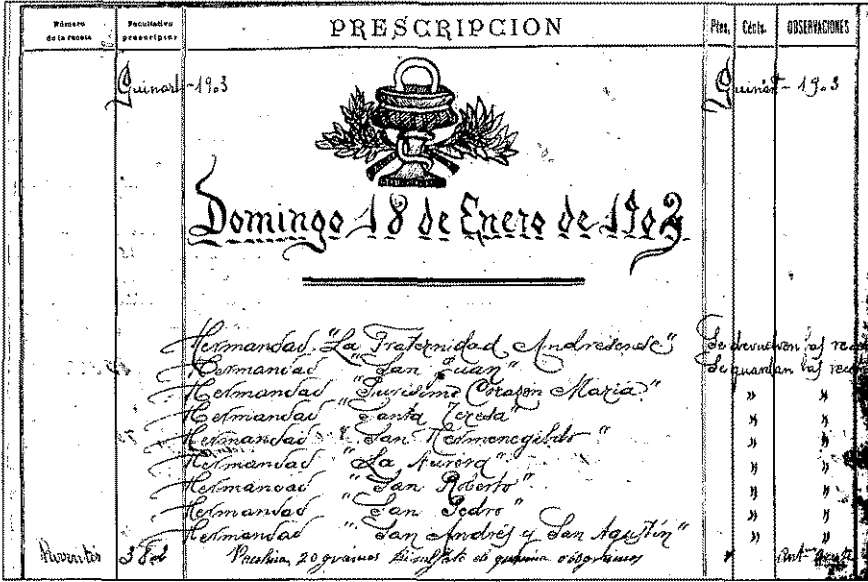 Número de la receta
Facultativo prescriptor
PRESCRIPCION
Ptas.
Cénts.
OBSERVACIONES
Guinart-1903
Guinart-1903
Domingo 18 de Enero de 1903
Hermandad "La Fraternidad Andresense" Se devuelven las rece
Hermandad "San Juan" Se guardan las rece
Hermandad "Purísimo Corazón María" " "
Hermandad "Santa Teresa" " "
Hermandad "San Hermenegildo" " "
Hermandad "La Aurora" " "
Hermandad "San Roberto" " "
Hermandad "San Pedro" " "
Hermandad "San Andrés y San Agustín" " "
20 gramos Bisulfato de quinina 0'60 gramos